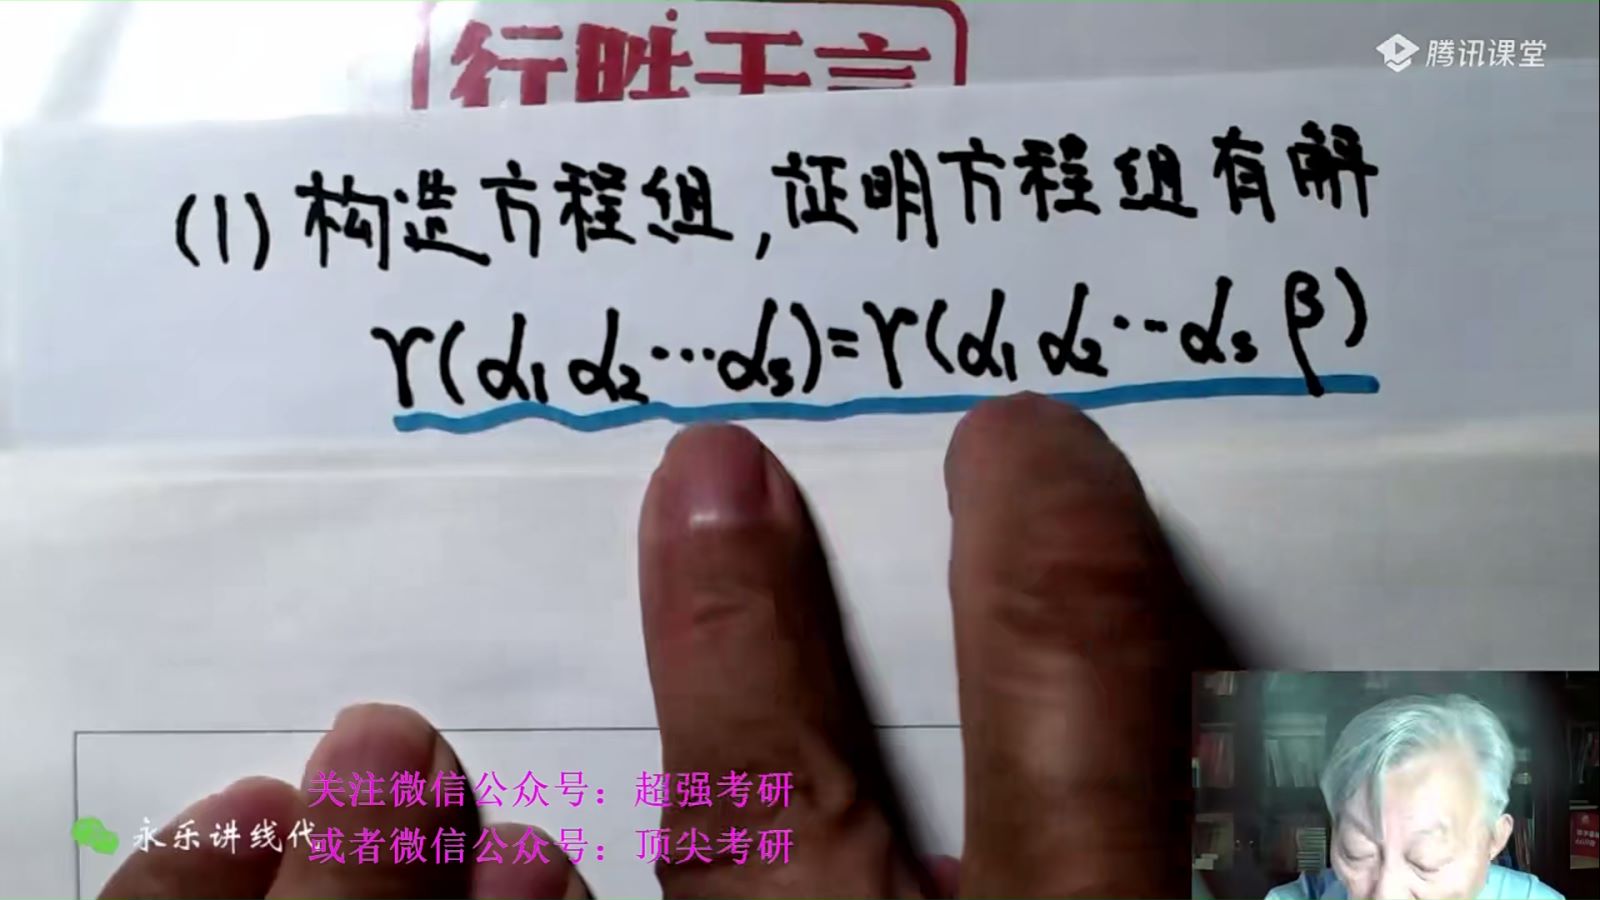 行胜于言
腾讯课堂
(1) 构造方程组,证明方程组有解
r(α1 α2 ⋯ αs)=r(α1 α2 ⋯ αs β)
关注微信公众号：超强考研
永乐讲线代
或者微信公众号：顶尖考研